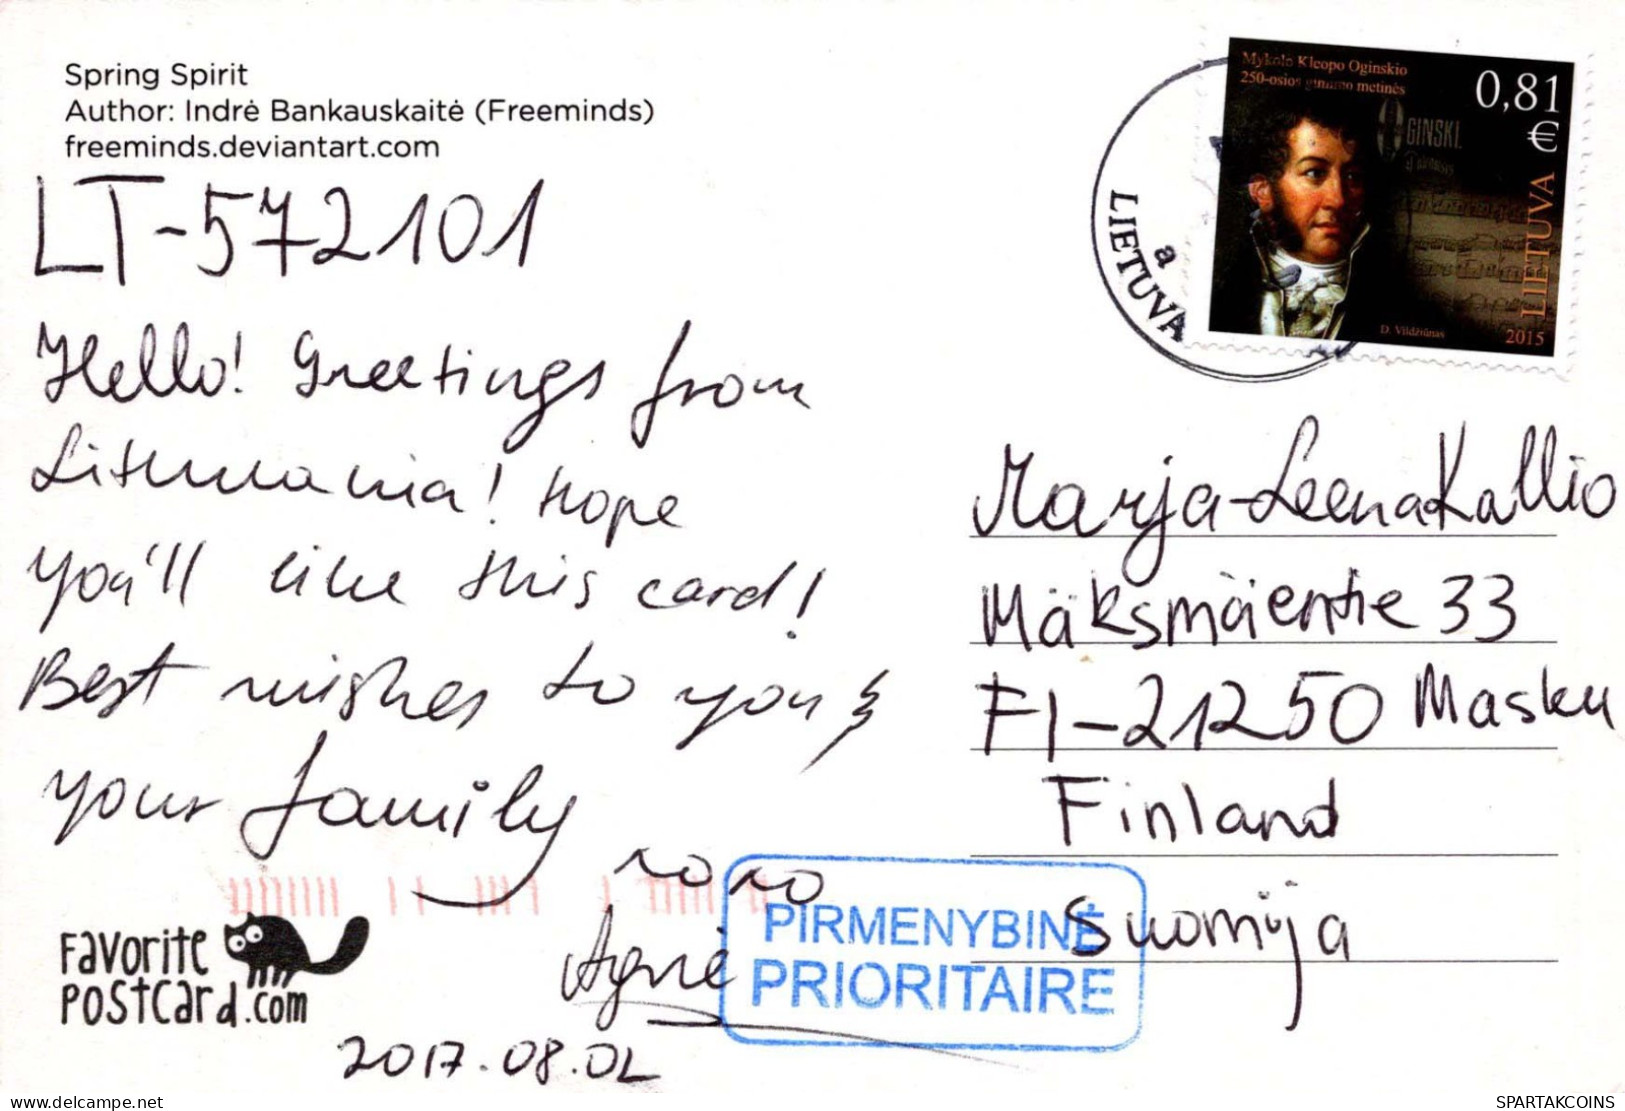 Spring Spirit
Author: Indrė Bankauskaitė (Freeminds)
freeminds.deviantart.com
LT-572101
Hello! Greetings from
Lithuania! Hope
you'll like this card!
Best wishes to you &
your family
xoxo
Agnė
2017.08.02
Favorite
postcard.com
Mykolo Kleopo Oginskio
250-osios gimimo metinės
0,81
€
OGINSKI
LIETUVA
D. Vildžiūnas
2015
a
LIETUVA
Marja-Leena Kallio
Mäksmäentie 33
FI-21250 Masku
Finland
Suomija
PIRMENYBINĖ
PRIORITAIRE
SPARTAKCOINS